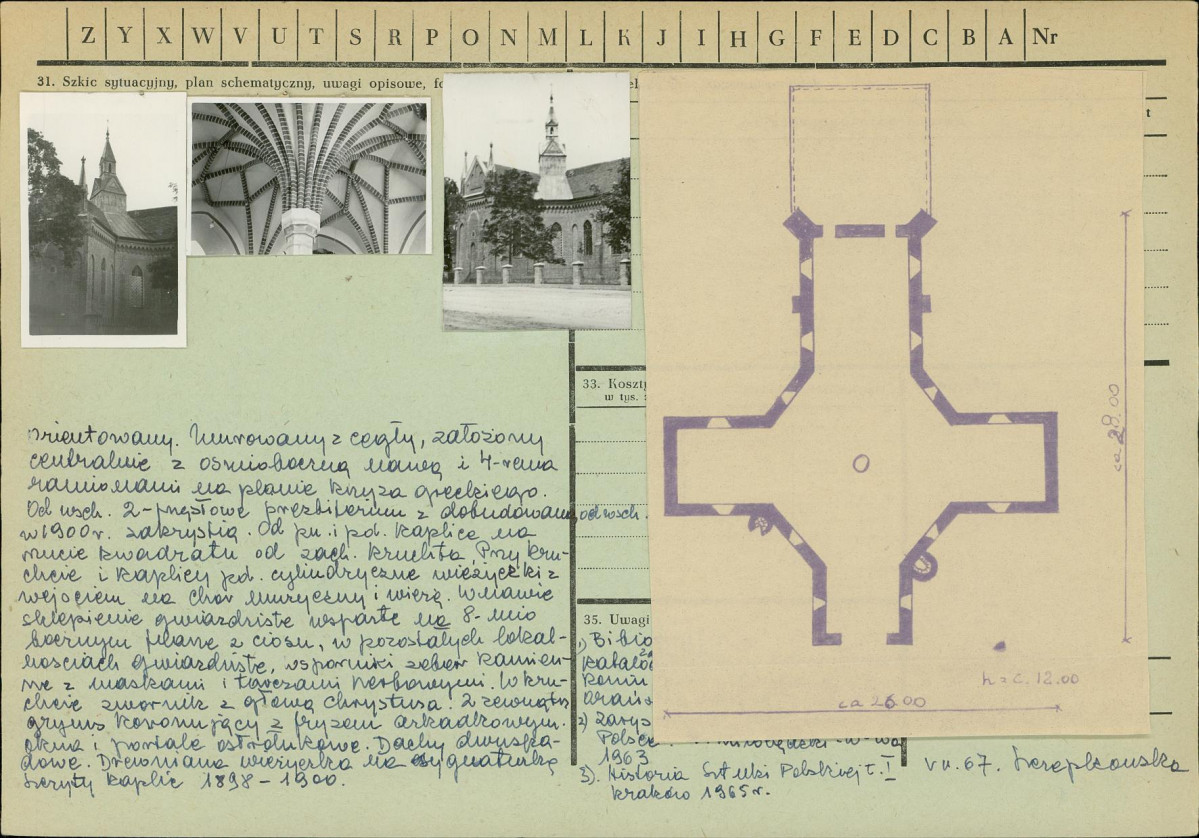 Z Y X W V U T S R P O N M L K J I H G F E D C B A Nr
31. Szkic sytuacyjny, plan schematyczny, uwagi opisowe,
33. Koszt
w tys.
35. Uwagi
orientowany. Murowany z cegły, założony
centralnie z ośmioboczną nawą i 4-rema
ramionami na planie krzyża greckiego.
Od wsch. 2-przęsłowe prezbiterium z dobudowaną od wsch.
w 1900 r. zakrystią. Od pn. i pd. kaplice na
rzucie kwadratu od zach. kruchta. Przy kru-
chcie i kaplicy pd. cylindryczne wieżyczki z
wejściem na chór muzyczny i wieżę. W nawie
sklepienie gwiaździste wsparte na 8-mio
bocznym filarze z ciosu, w pozostałych lokal-
nościach gwiaździste, wsporniki żeber kamien-
ne z maskami i tarczami herbowymi. W kru-
chcie zwornik z głową Chrystusa. Z zewnątrz
gzyms koronujący z fryzem arkadkowym.
Okna i portale ostrołukowe. Dachy dwuspa-
dowe. Drewniana wieżyczka na sygnaturkę
Szczyty kaplic 1898 - 1900.
1) Biblio
Katalog
2) Zarys
Polsce.
1963
3). Historia Sztuki Polskiej t. I
Kraków 1965 r.
VII. 67. Szczepkowska
ca 28.00
h = c. 12.00
ca 26.00